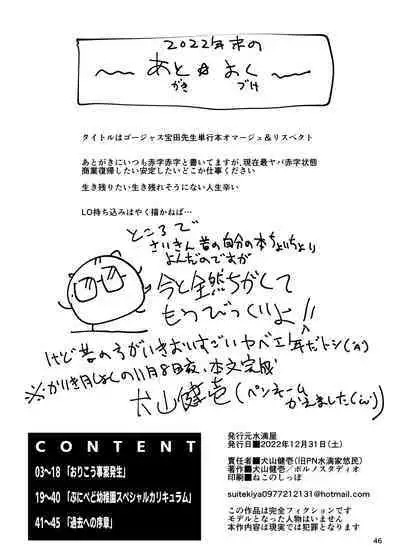 2022年末の
あと☆おく
がき づけ
タイトルはゴージャス宝田先生単行本オマージュ&リスペクト
あとがきにいつも赤字赤字と書いてますが、現在最ヤバ赤字状態
商業復帰したい安定したいどこか仕事ください
生き残りたい生き残れそうにない人生辛い
LO持ち込みはやく描かねば…
ところで
さいきん昔の自分の本ちょいちょい
よんだのですが
今と全然ちがくて
もうびっくりよ!!
けど昔の方がいきおいすごい
本文完成
犬山健壱(ペンネーム
かえました
CONTENT
03~18「おりこう事案発生」
19~40「ぷにぺど幼稚園スペシャルカリキュラム」
41~45「過去への序章」
発行元水滴屋
発行日■2022年12月31日(土)
責任者■犬山健壱(旧PN水滴家悠民)
著作■犬山健壱/ポルノスタディオ
印刷■ねこのしっぽ
suitekiya0977212131@hotmail.com
この作品は完全フィクションです
モデルとなった人物はいません
本作内容は現実では犯罪となります
46